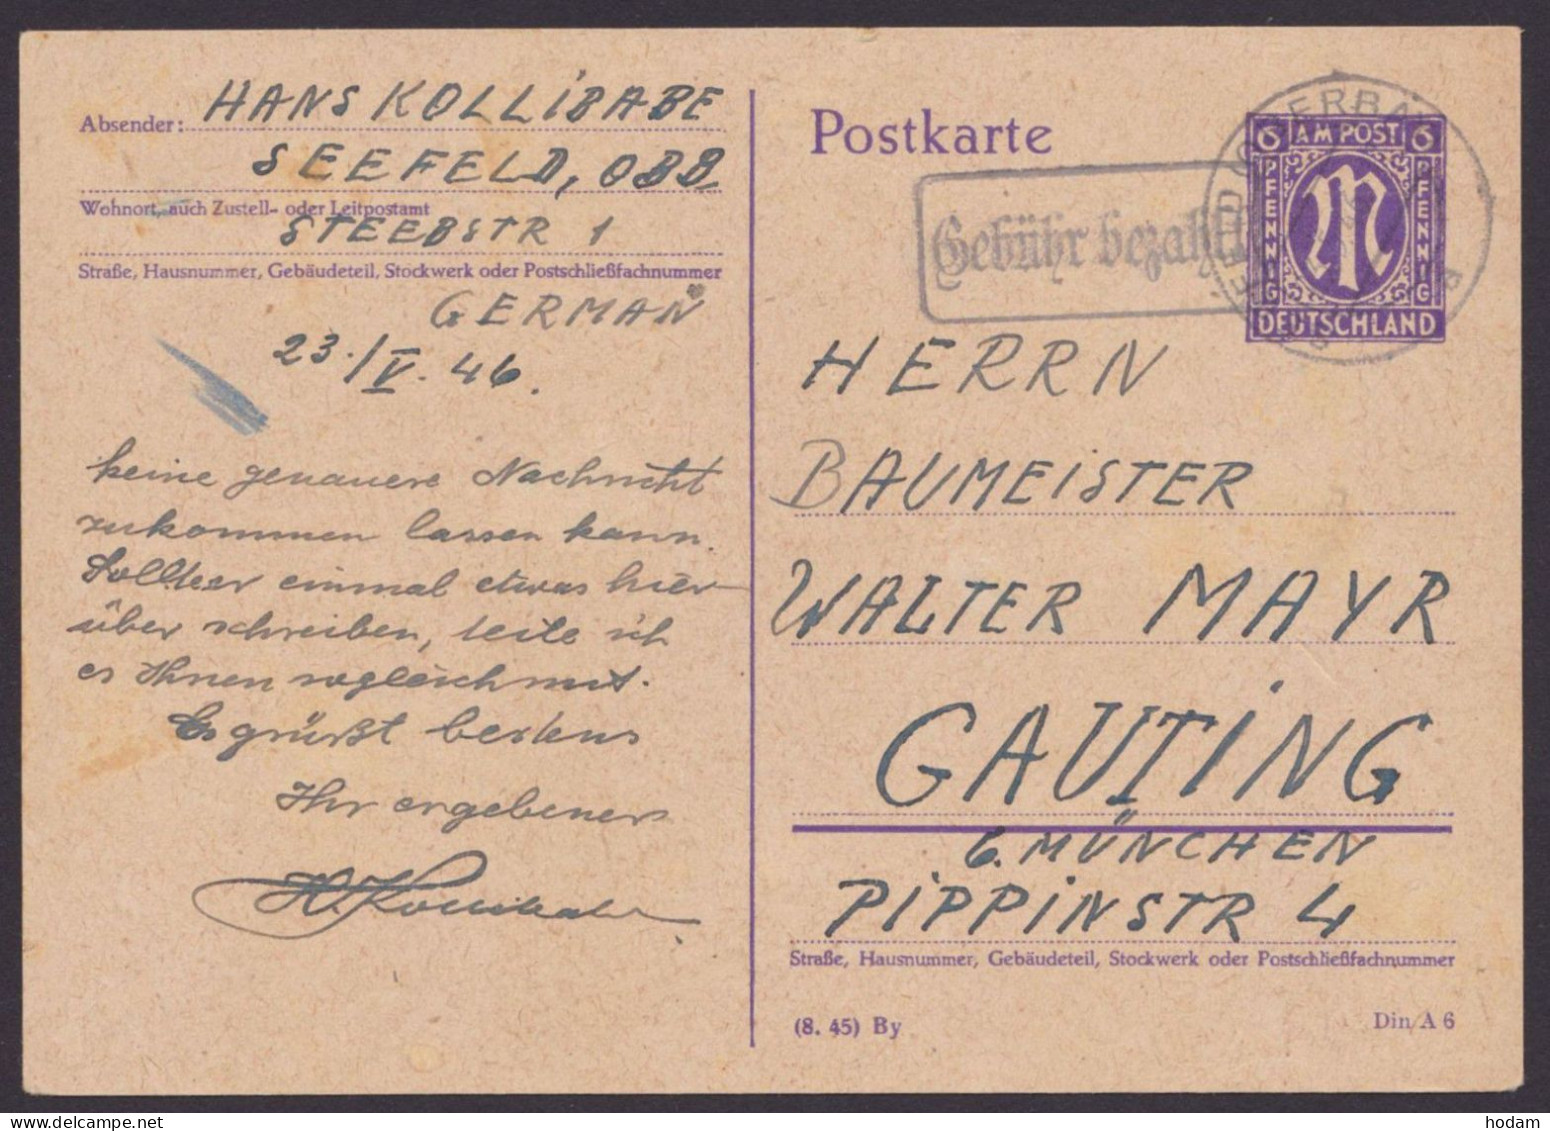 Absender: HANS KOLLIBABE
SEEFELD, OBB.
Wohnort, auch Zustell- oder Leitpostamt
STEEBSTR 1
Straße, Hausnummer, Gebäudeteil, Stockwerk oder Postschließfachnummer
GERMAN
23./V. 46.
keine genauere Nachricht
zukommen lassen kann.
Sollte er einmal etwas hier-
über schreiben, teile ich
es Ihnen sogleich mit.
Es grüßt bestens
Ihr ergebener
H. Kollibabe
Postkarte
Gebühr bezahlt
6 AM POST 6
PFENNIG
PFENNIG
DEUTSCHLAND
HERRN
BAUMEISTER
WALTER MAYR
GAUTING
b. MÜNCHEN
PIPPINSTR 4
Straße, Hausnummer, Gebäudeteil, Stockwerk oder Postschließfachnummer
(8. 45) By
Din A 6
hodam